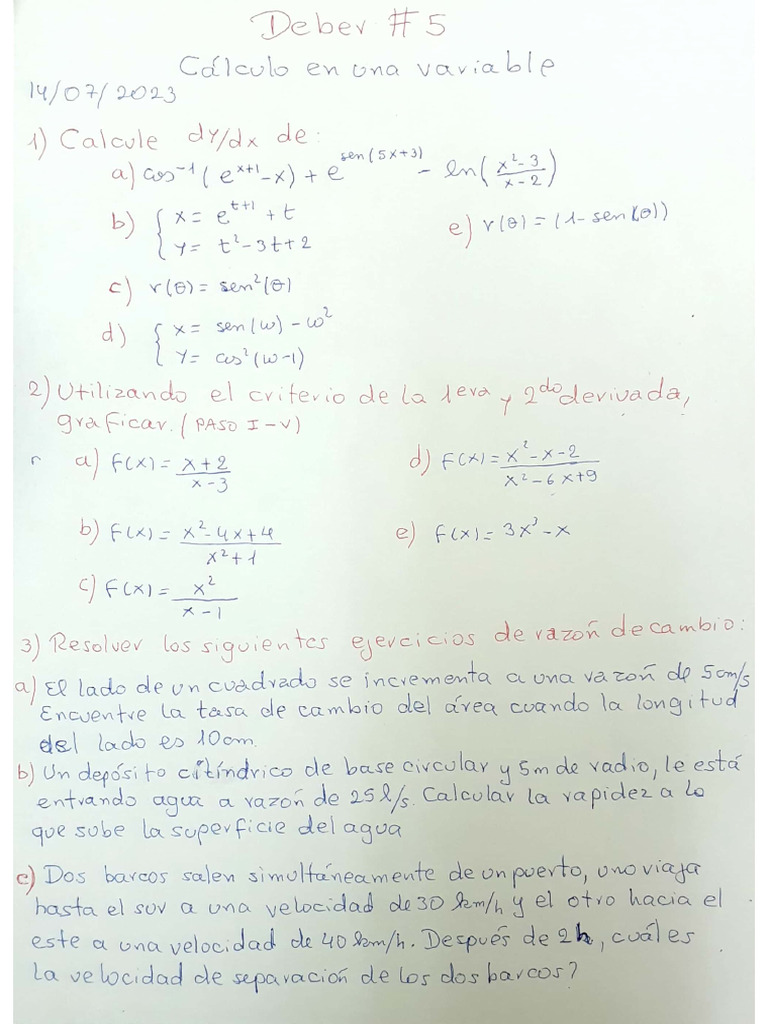 Deber #5
Cálculo en una variable
14/07/2023
1) Calcule dy/dx de:
a) cos⁻¹(e^(x+1) - x) + e^(sen(5x+3)) - ln((x²-3)/(x-2))
b) { x = e^(t+1) + t
y = t² - 3t + 2
e) r(θ) = (1 - sen(θ))
c) r(θ) = sen²(θ)
d) { x = sen(ω) - ω²
y = cos²(ω-1)
2) Utilizando el criterio de la 1era y 2do derivada,
graficar. (PASO I-V)
a) F(x) = (x+2)/(x-3)
d) F(x) = (x²-x-2)/(x²-6x+9)
b) F(x) = (x²-4x+4)/(x²+1)
e) F(x) = 3x³-x
c) F(x) = x²/(x-1)
3) Resolver los siguientes ejercicios de razón de cambio:
a) El lado de un cuadrado se incrementa a una razón de 5cm/s
Encuentre la tasa de cambio del área cuando la longitud
del lado es 10cm.
b) Un depósito cilíndrico de base circular y 5m de radio, le está
entrando agua a razón de 25l/s. Calcular la rapidez a lo
que sube la superficie del agua
c) Dos barcos salen simultáneamente de un puerto, uno viaja
hasta el sur a una velocidad de 30 km/h y el otro hacia el
este a una velocidad de 40km/h. Después de 2h, cuál es
la velocidad de separación de los dos barcos?